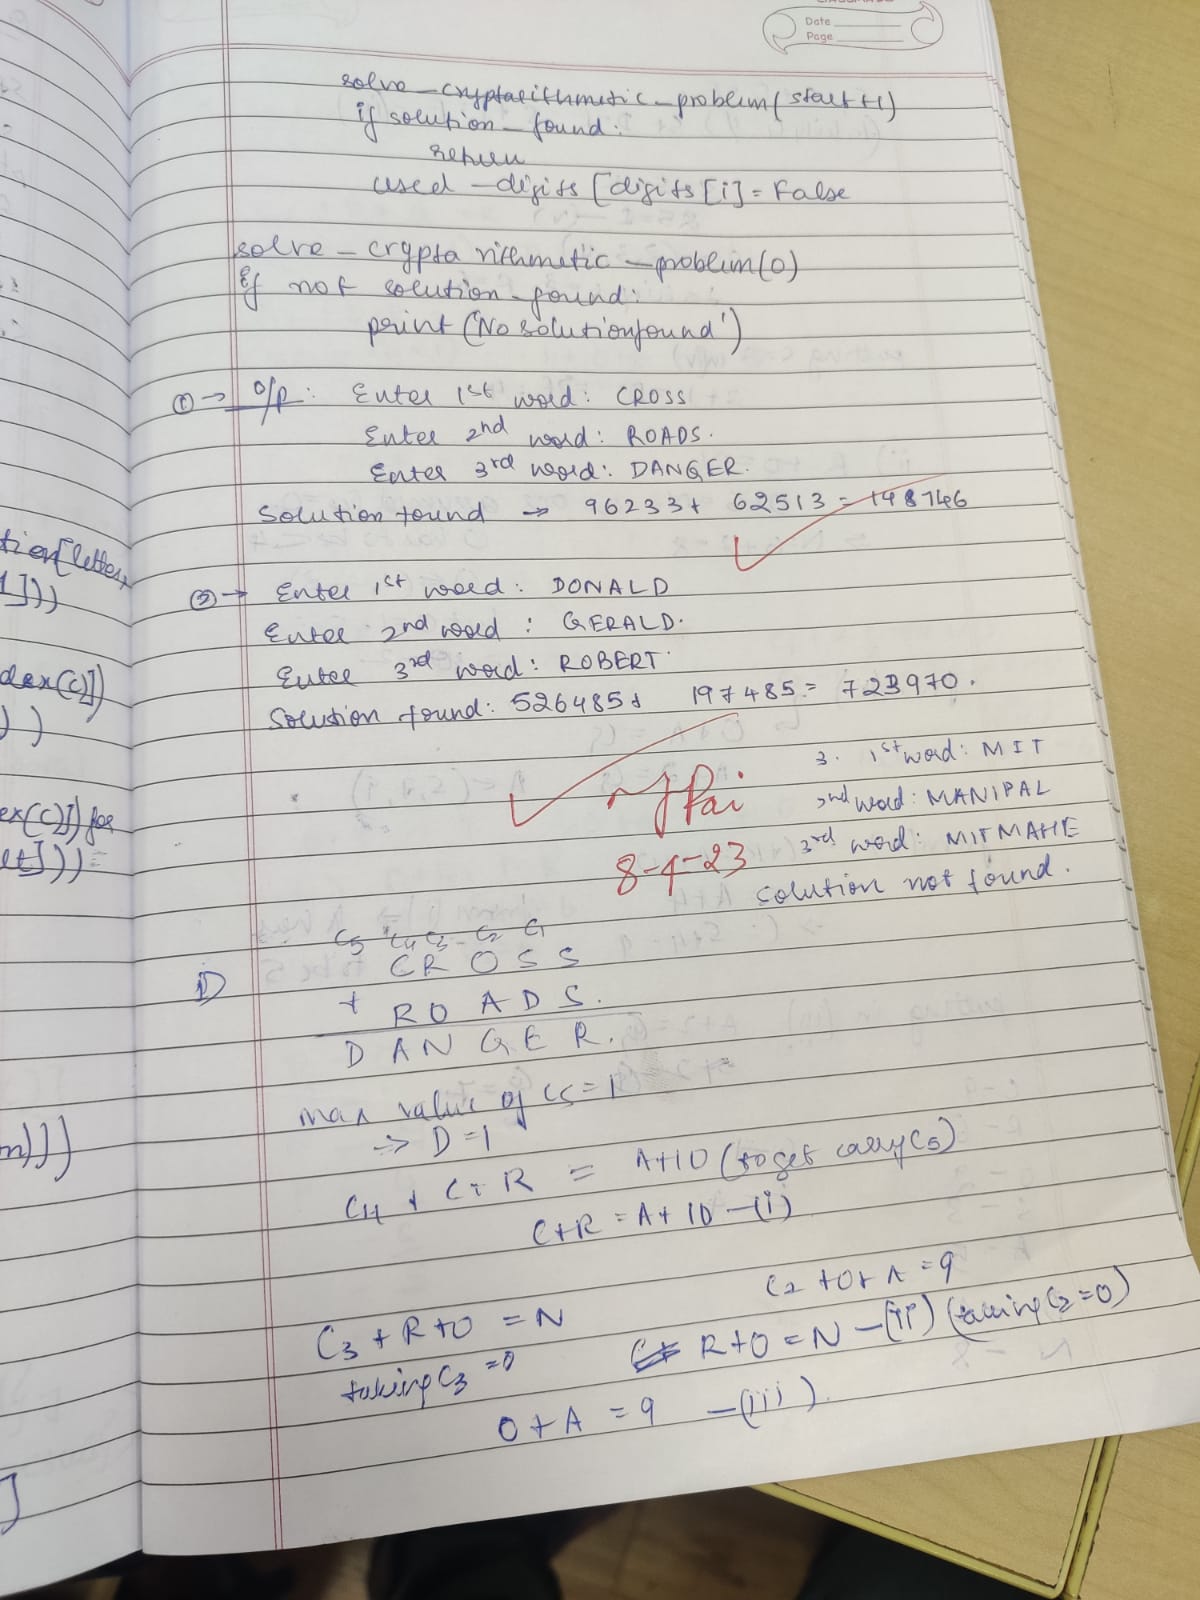 Date
Page
solve_cryptarithmetic_problem(start+1)
if solution_found:
return
used_digits[digits[i]=False
solve_cryptarithmetic_problem(0)
if not solution_found:
print('No solutionfound')
① → O/P: Enter 1st word: CROSS
Enter 2nd word: ROADS.
Enter 3rd word: DANGER.
Solution found → 96233 + 62513 = 198746
② → Enter 1st word: DONALD
Enter 2nd word: GERALD.
Enter 3rd word: ROBERT.
Solution found: 526485 + 197485 = 723970.
3. 1st word: MIT
2nd word: MANIPAL
3rd word: MITMAHE
solution not found.
Pai
8-4-23
C5 C4 C3 C2 C1
1) CROSS
+ ROADS.
DANGER.
max value of C5 = 1
⇒ D = 1
C4 + C + R = A + 10 (to get carry C5)
C + R = A + 10 — (i)
C2 + O + A = 9
C3 + R + O = N
R + O = N — (ii) (taking C2 = 0)
taking C3 = 0
O + A = 9 — (iii).
tion[letter,
1]))
dex(c)])
))
ex(c)]) for
et]))
n)))
]